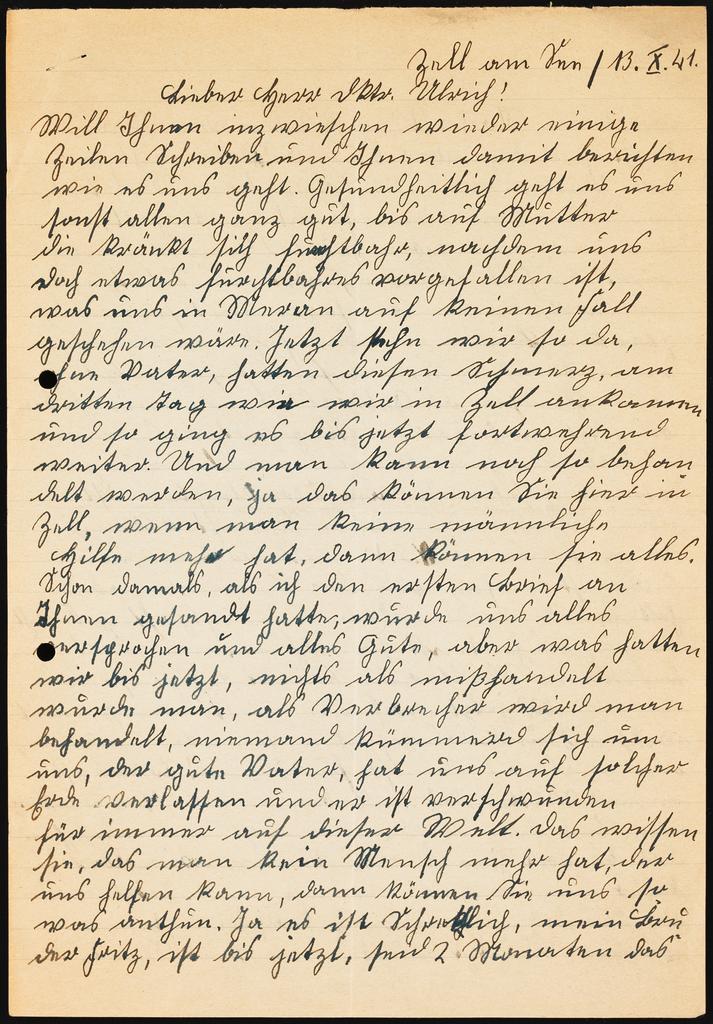 Zell am See / 13. X. 41.
Lieber Herr Dktr. Ulrich!
Will Ihnen inzwieschen wieder einige
Zeilen Schreiben und Ihnen damit berichten
wie es uns geht. Gesundheitlich geht es uns
sonst allen ganz gut, bis auf Mutter
die kränkt sich furchtbahr, nachdem uns
doch etwas furchtbahres vorgefallen ist,
was uns in Meran auf keinen Fall
geschehen wäre. Jetzt stehn wir so da,
ohne Vater, hatten diesen Schmerz, am
dritten Tag wie wir in Zell ankamen
und so ging es bis jetzt fortwehrend
weiter. Und man kann noch so behan
delt werden, ja das können Sie hier in
Zell, wenn man keine männliche
Hilfe mehr hat, dann können sie alles.
Schon damals, als ich den ersten Brief an
Ihnen gesandt hatte, wurde uns alles
versprochen und alles Gute, aber was hatten
wir bis jetzt, nichts als mißhandelt
wurde man, als Verbrecher wird man
behandelt, niemand kümmerd sich um
uns, der gute Vater, hat uns auf solcher
Erde verlassen und er ist verschwunden
für immer auf dieser Welt. Das wissen
sie, das man kein Mensch mehr hat, der
uns helfen kann, dann können Sie uns so
was anthun. Ja es ist Schrecklich, mein Bru
der Fritz, ist bis jetzt, seid 2 Monaten das